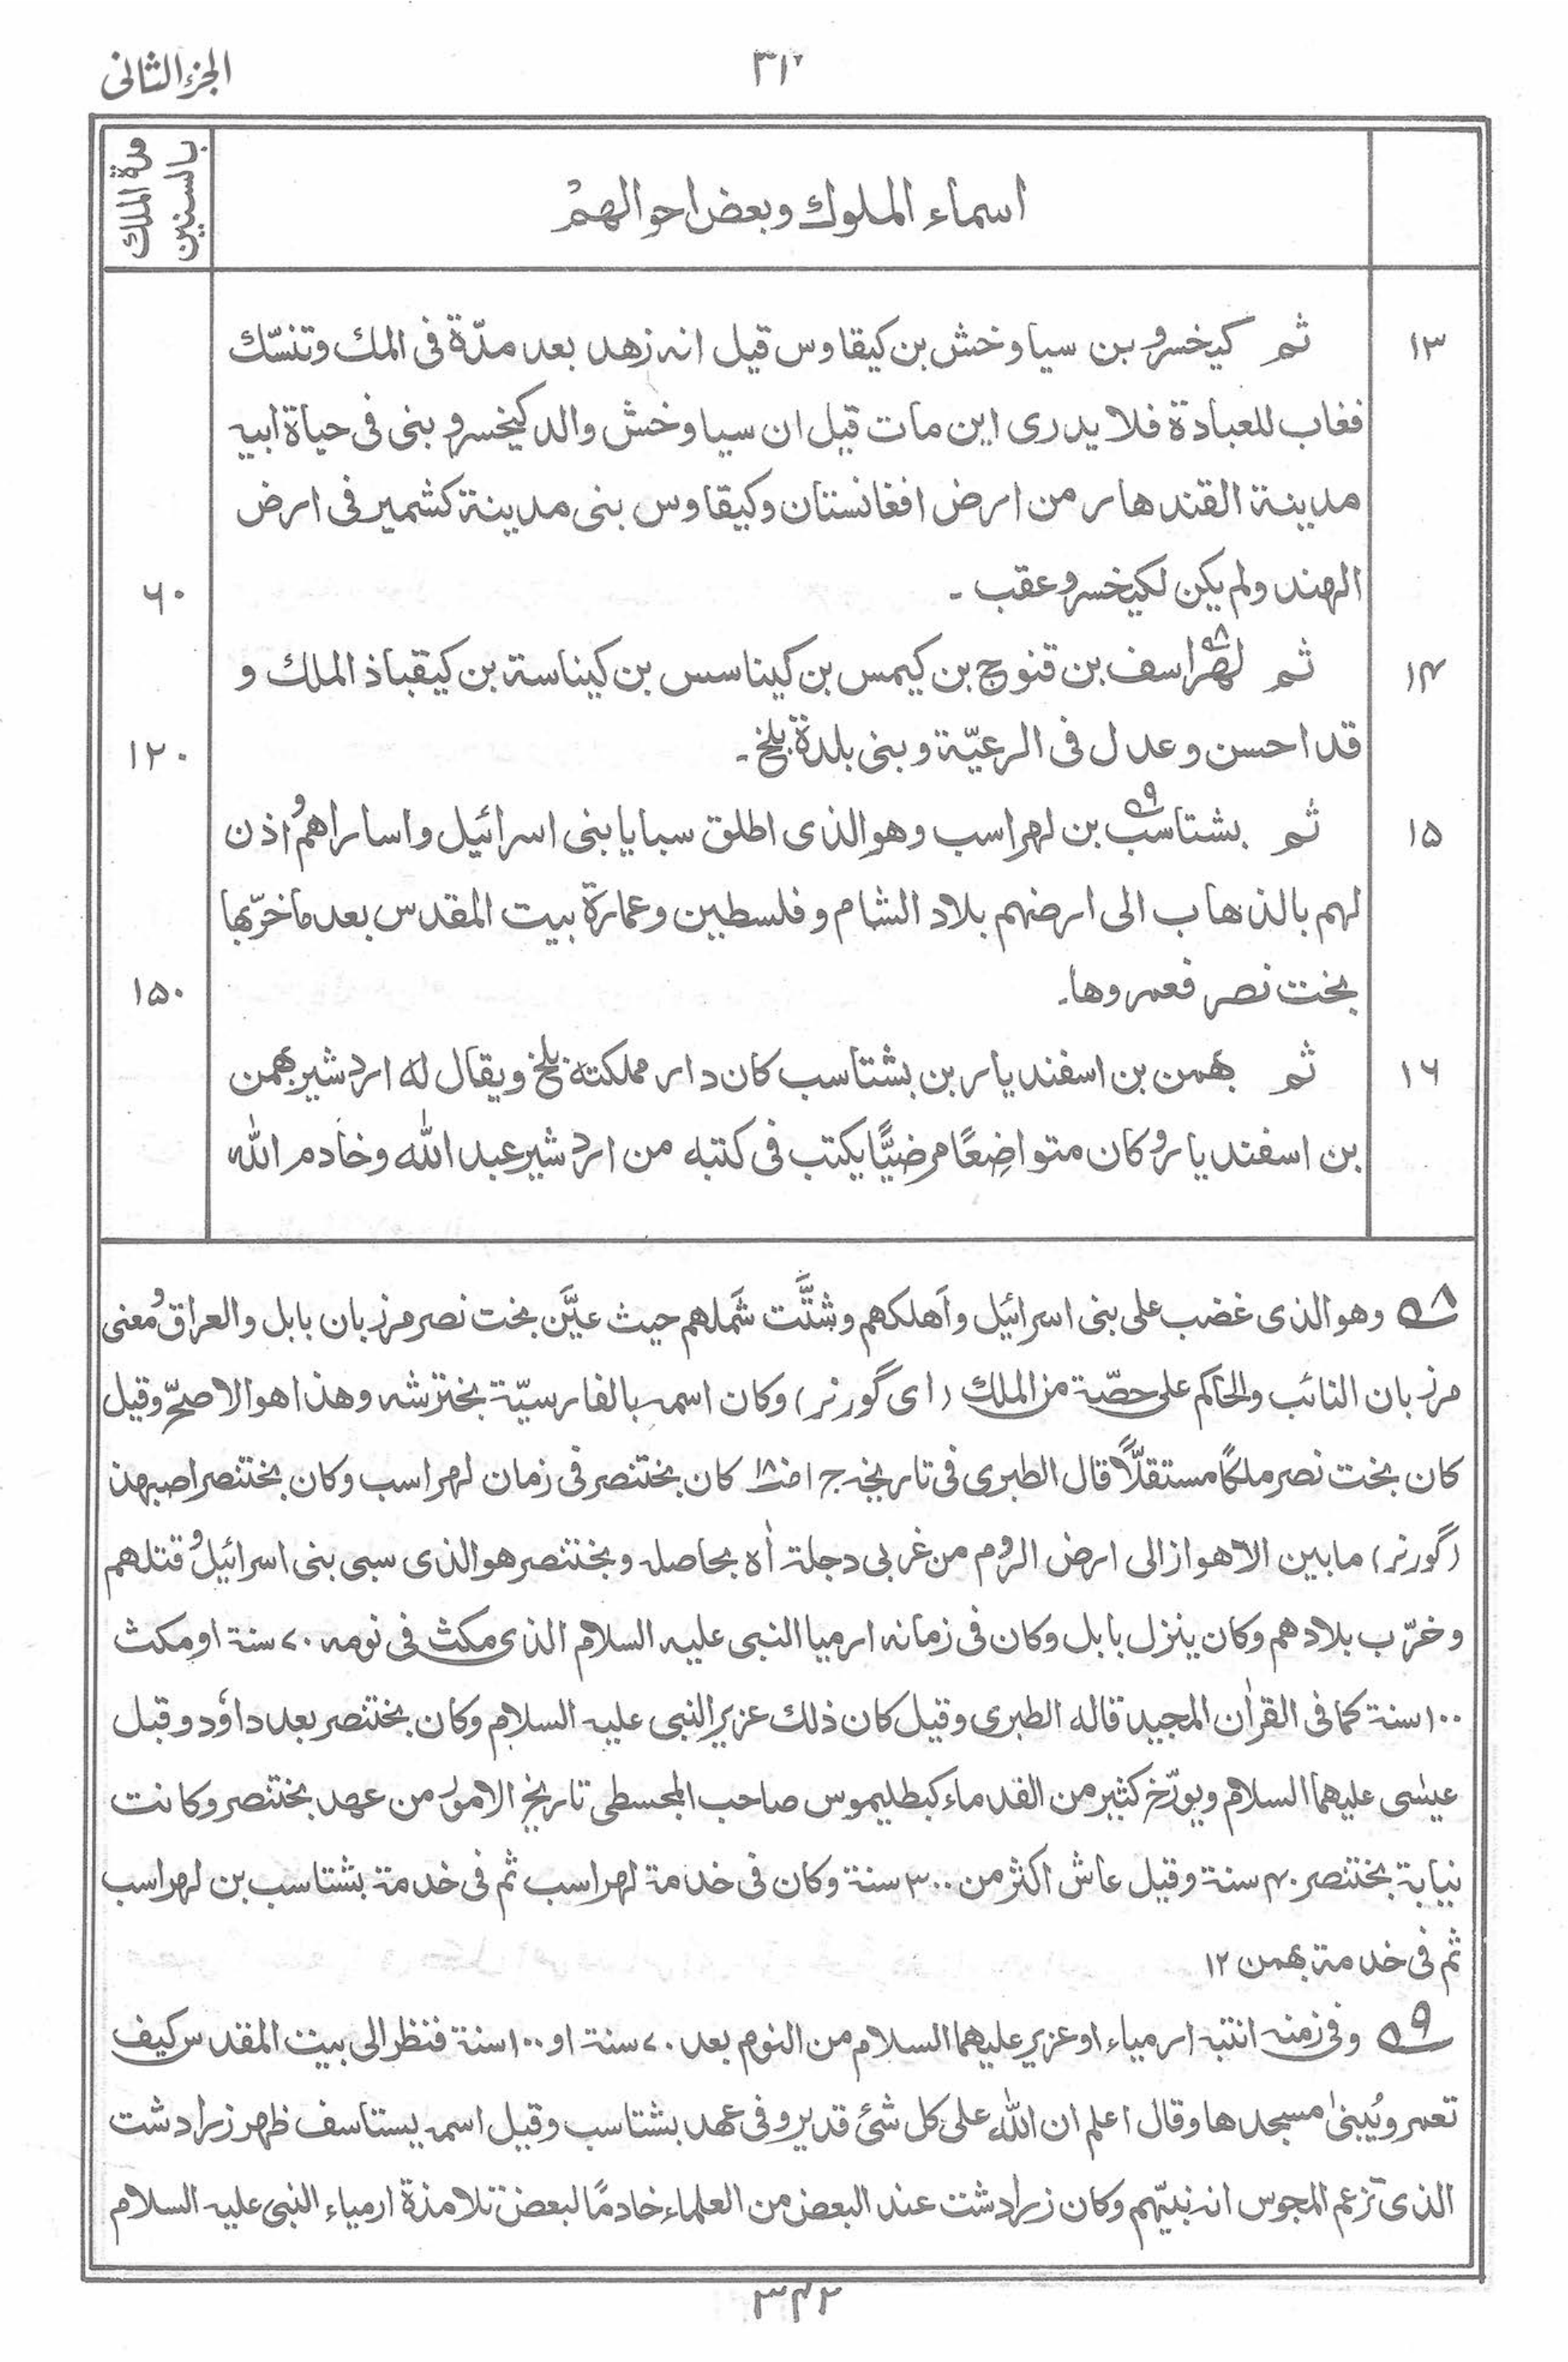 الجزء الثانی
۳۱۲
اسماء الملوك وبعض احوالهم
مدة الملك بالسنين
۱۳ ثم كيخسرو بن سياوخش بن كيقاوس قيل انه زهد بعد مدّة فى الملك وتنسّك
فغاب للعبادة فلا يدرى اين مات قيل ان سياوخش والد كيخسرو بنى فى حياة ابيه
مدينة القندهار من ارض افغانستان وكيقاوس بنى مدينة كشمير فى ارض
الهند ولم يكن لكيخسرو عقب ۔ ۶۰
۱۴ ثم لهراسف ۸ بن قنوج بن كيمس بن كيناسس بن كيناسة بن كيقباذ الملك و
قد احسن وعدل فى الرعيّة وبنى بلدة بلخ ۔ ۱۲۰
۱۵ ثم بشتاسب ۹ بن لهراسب وهو الذى اطلق سبايا بنى اسرائيل واساراهم واذن
لهم بالذهاب الى ارضهم بلاد الشام وفلسطين وعمارة بيت المقدس بعد ما خرّبها
بخت نصر فعمروها۔ ۱۵۰
۱۶ ثم بهمن بن اسفنديار بن بشتاسب كان دار مملكته بلخ ويقال له اردشير بهمن
بن اسفنديار وكان متواضِعًا مرضيًّا يكتب فى كتبه من اردشير عبد اللّٰه وخادم اللّٰه
۸ وهو الذى غضب على بنى اسرائيل وأهلكهم وشتَّت شَملهم حيث عيَّن بخت نصر مرزبان بابل والعراق ومعنى
مرزبان النائب والحاكم على حصّة من الملك (اى گورنر) وكان اسمه بالفارسيّة بخترشه وهذا هو الاصحّ وقيل
كان بخت نصر ملكًا مستقلًّا قال الطبرى فى تاريخه ج ا كان بختنصر فى زمان لهراسب وكان بختنصر اصبهذ
(گورنر) ما بين الاهواز الى ارض الروم من غربى دجلة أه بحاصله وبختنصر هو الذى سبى بنى اسرائيل وقتلهم
وخرّب بلادهم وكان ينزل بابل وكان فى زمانه ارميا النبى عليه السلام الذى مكث فى نومه ۷۰ سنة او مكث
۱۰۰ سنة كما فى القرأن المجيد قاله الطبرى وقيل كان ذلك عزير النبى عليه السلام وكان بختنصر بعد داؤد وقبل
عيسٰى عليهما السلام ويورّخ كثير من القدماء كبطليموس صاحب المجسطى تاريخ الامور من عهد بختنصر وكانت
نيابة بختنصر ۴۰ سنة وقيل عاش اكثر من ۳۰۰ سنة وكان فى خدمة لهراسب ثم فى خدمة بشتاسب بن لهراسب
ثم فى خدمة بهمن ۱۲
۹ وفى زمنه انتبه ارمياء او عزير عليهما السلام من النوم بعد ۷۰ سنة او ۱۰۰ سنة فنظر الى بيت المقدس كيف
تعمر ويُبنىٰ مسجدها وقال اعلم ان اللّٰه على كل شئ قدير وفى عهد بشتاسب وقيل اسمه يستاسف ظهر زرادشت
الذى تزعم المجوس انه نبيّهم وكان زرادشت عند البعض من العلماء خادمًا لبعض تلامذة ارمياء النبى عليه السلام
۳۴۲